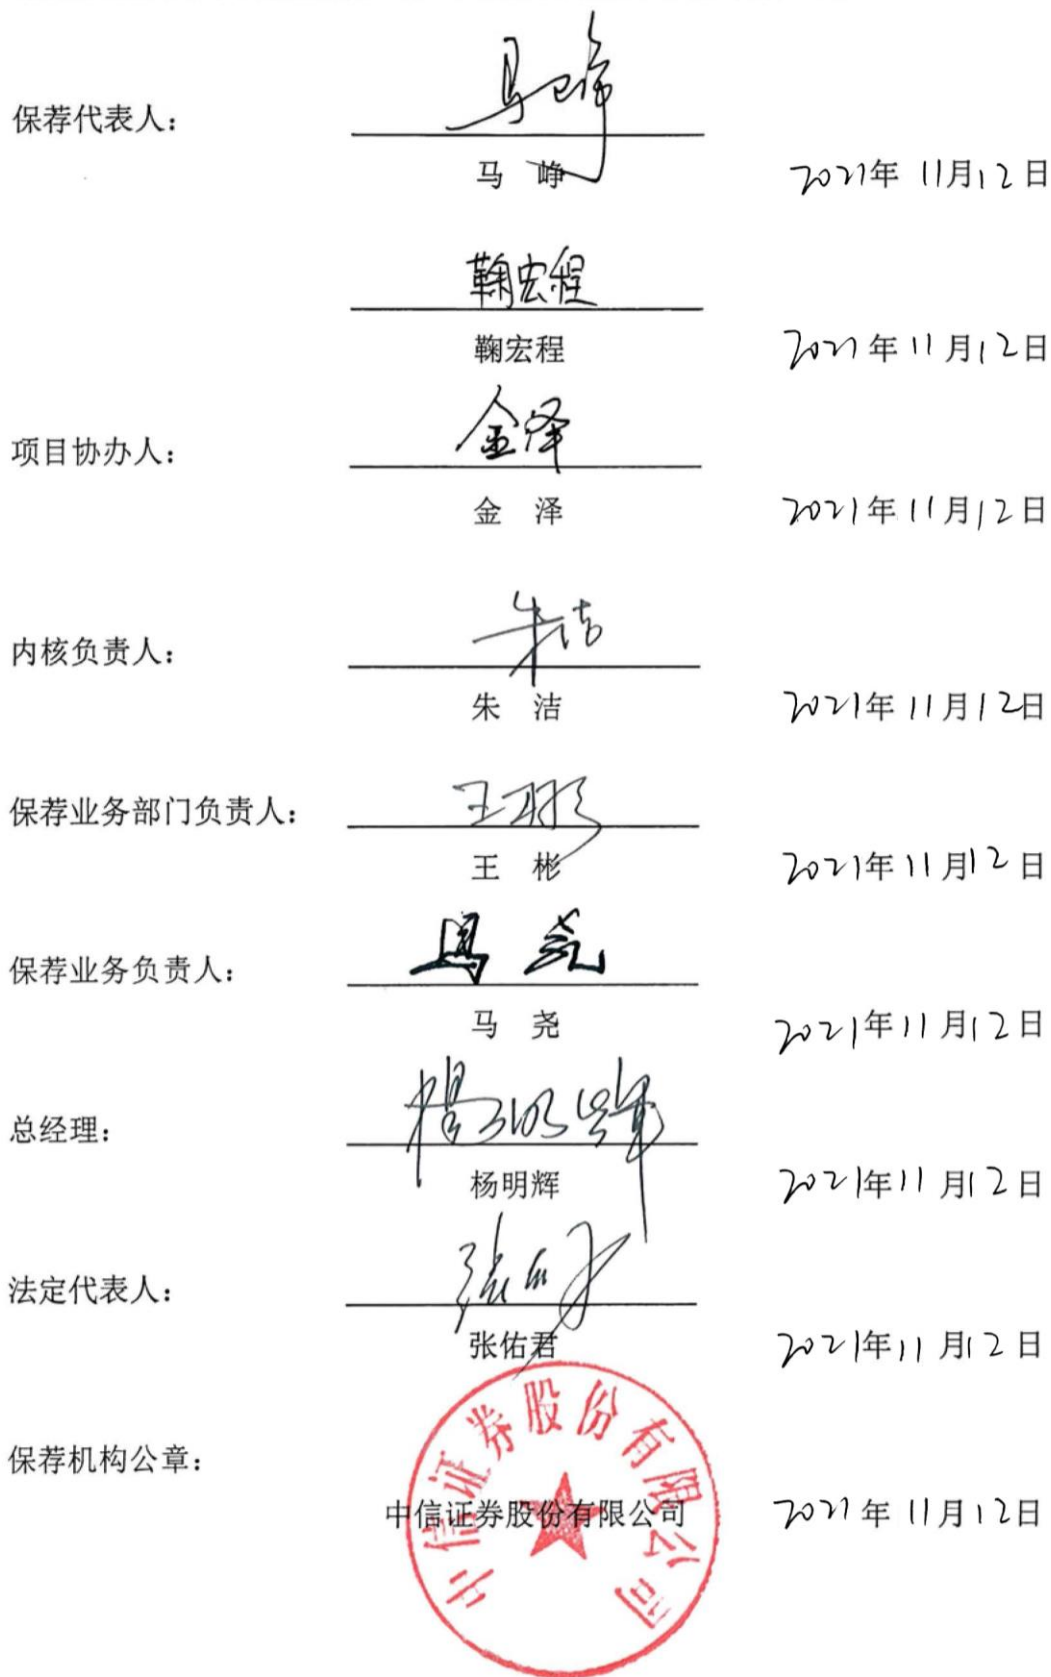 保荐代表人：
马峥
马 峥
2021年 11月12日
鞠宏程
鞠宏程
2021年11月12日
项目协办人：
金泽
金 泽
2021年11月12日
内核负责人：
朱洁
朱 洁
2021年11月12日
保荐业务部门负责人：
王彬
王 彬
2021年11月12日
保荐业务负责人：
马尧
马 尧
2021年11月12日
总经理：
杨明辉
杨明辉
2021年11月12日
法定代表人：
张佑君
张佑君
2021年11月12日
保荐机构公章：
中信证券股份有限公司
中信证券股份有限公司
2021年11月12日